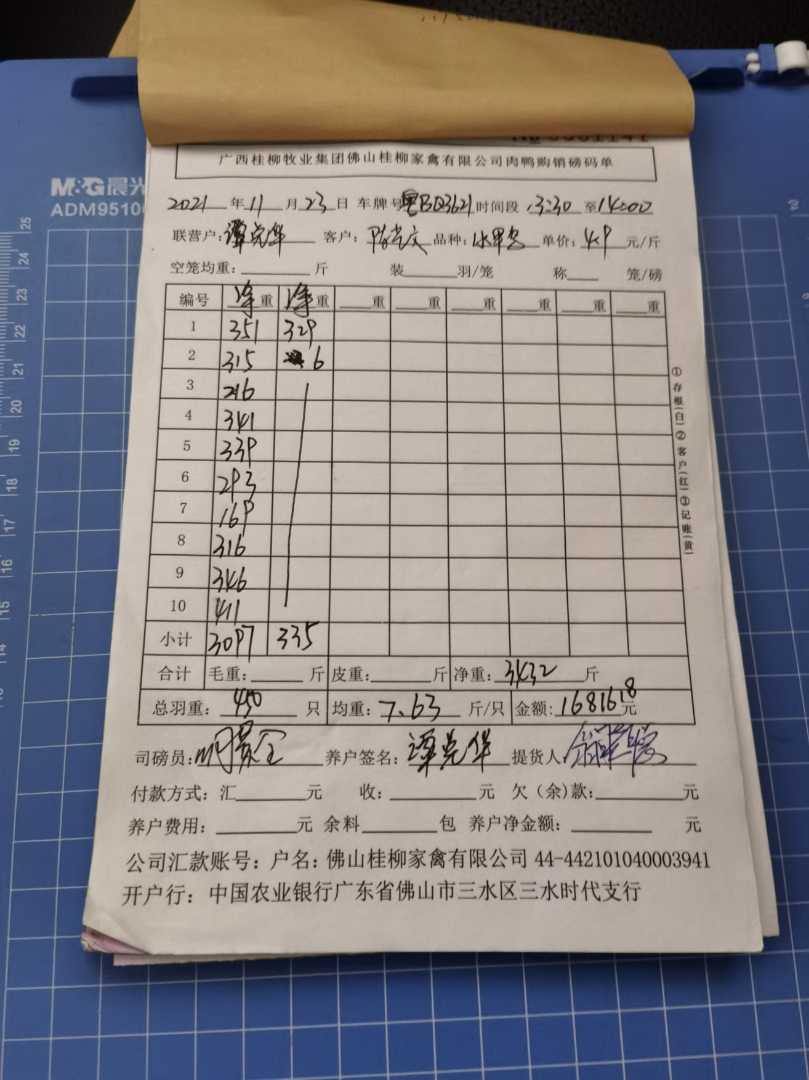 M&G晨光
ADM9510
广西桂柳牧业集团佛山桂柳家禽有限公司肉鸭购销磅码单
2021年11月23日 车牌号粤BQ3621时间段13:30至14:00
联营户:谭克华 客户: 品种: 单价:4.9元/斤
空笼均重:斤 装羽/笼 称笼/磅
编号 净重 净重 重 重 重 重 重 重
1 351 329
2 315 6
3 216
4 341
5 339
6 293
7 169
8 316
9 346
10 411
小计 3097 335
合计 毛重:斤 皮重:斤 净重:3432斤
总羽重:450只 均重:7.63斤/只 金额:16816.8元
司磅员: 养户签名:谭克华 提货人:
付款方式:汇元 收:元 欠(余)款:元
养户费用:元 余料包 养户净金额:元
公司汇款账号:户名:佛山桂柳家禽有限公司 44-442101040003941
开户行:中国农业银行广东省佛山市三水区三水时代支行
①存根(白)②客户(红)③记账(黄)
25
24
23
22
21
20
19
18
17
16
15
14